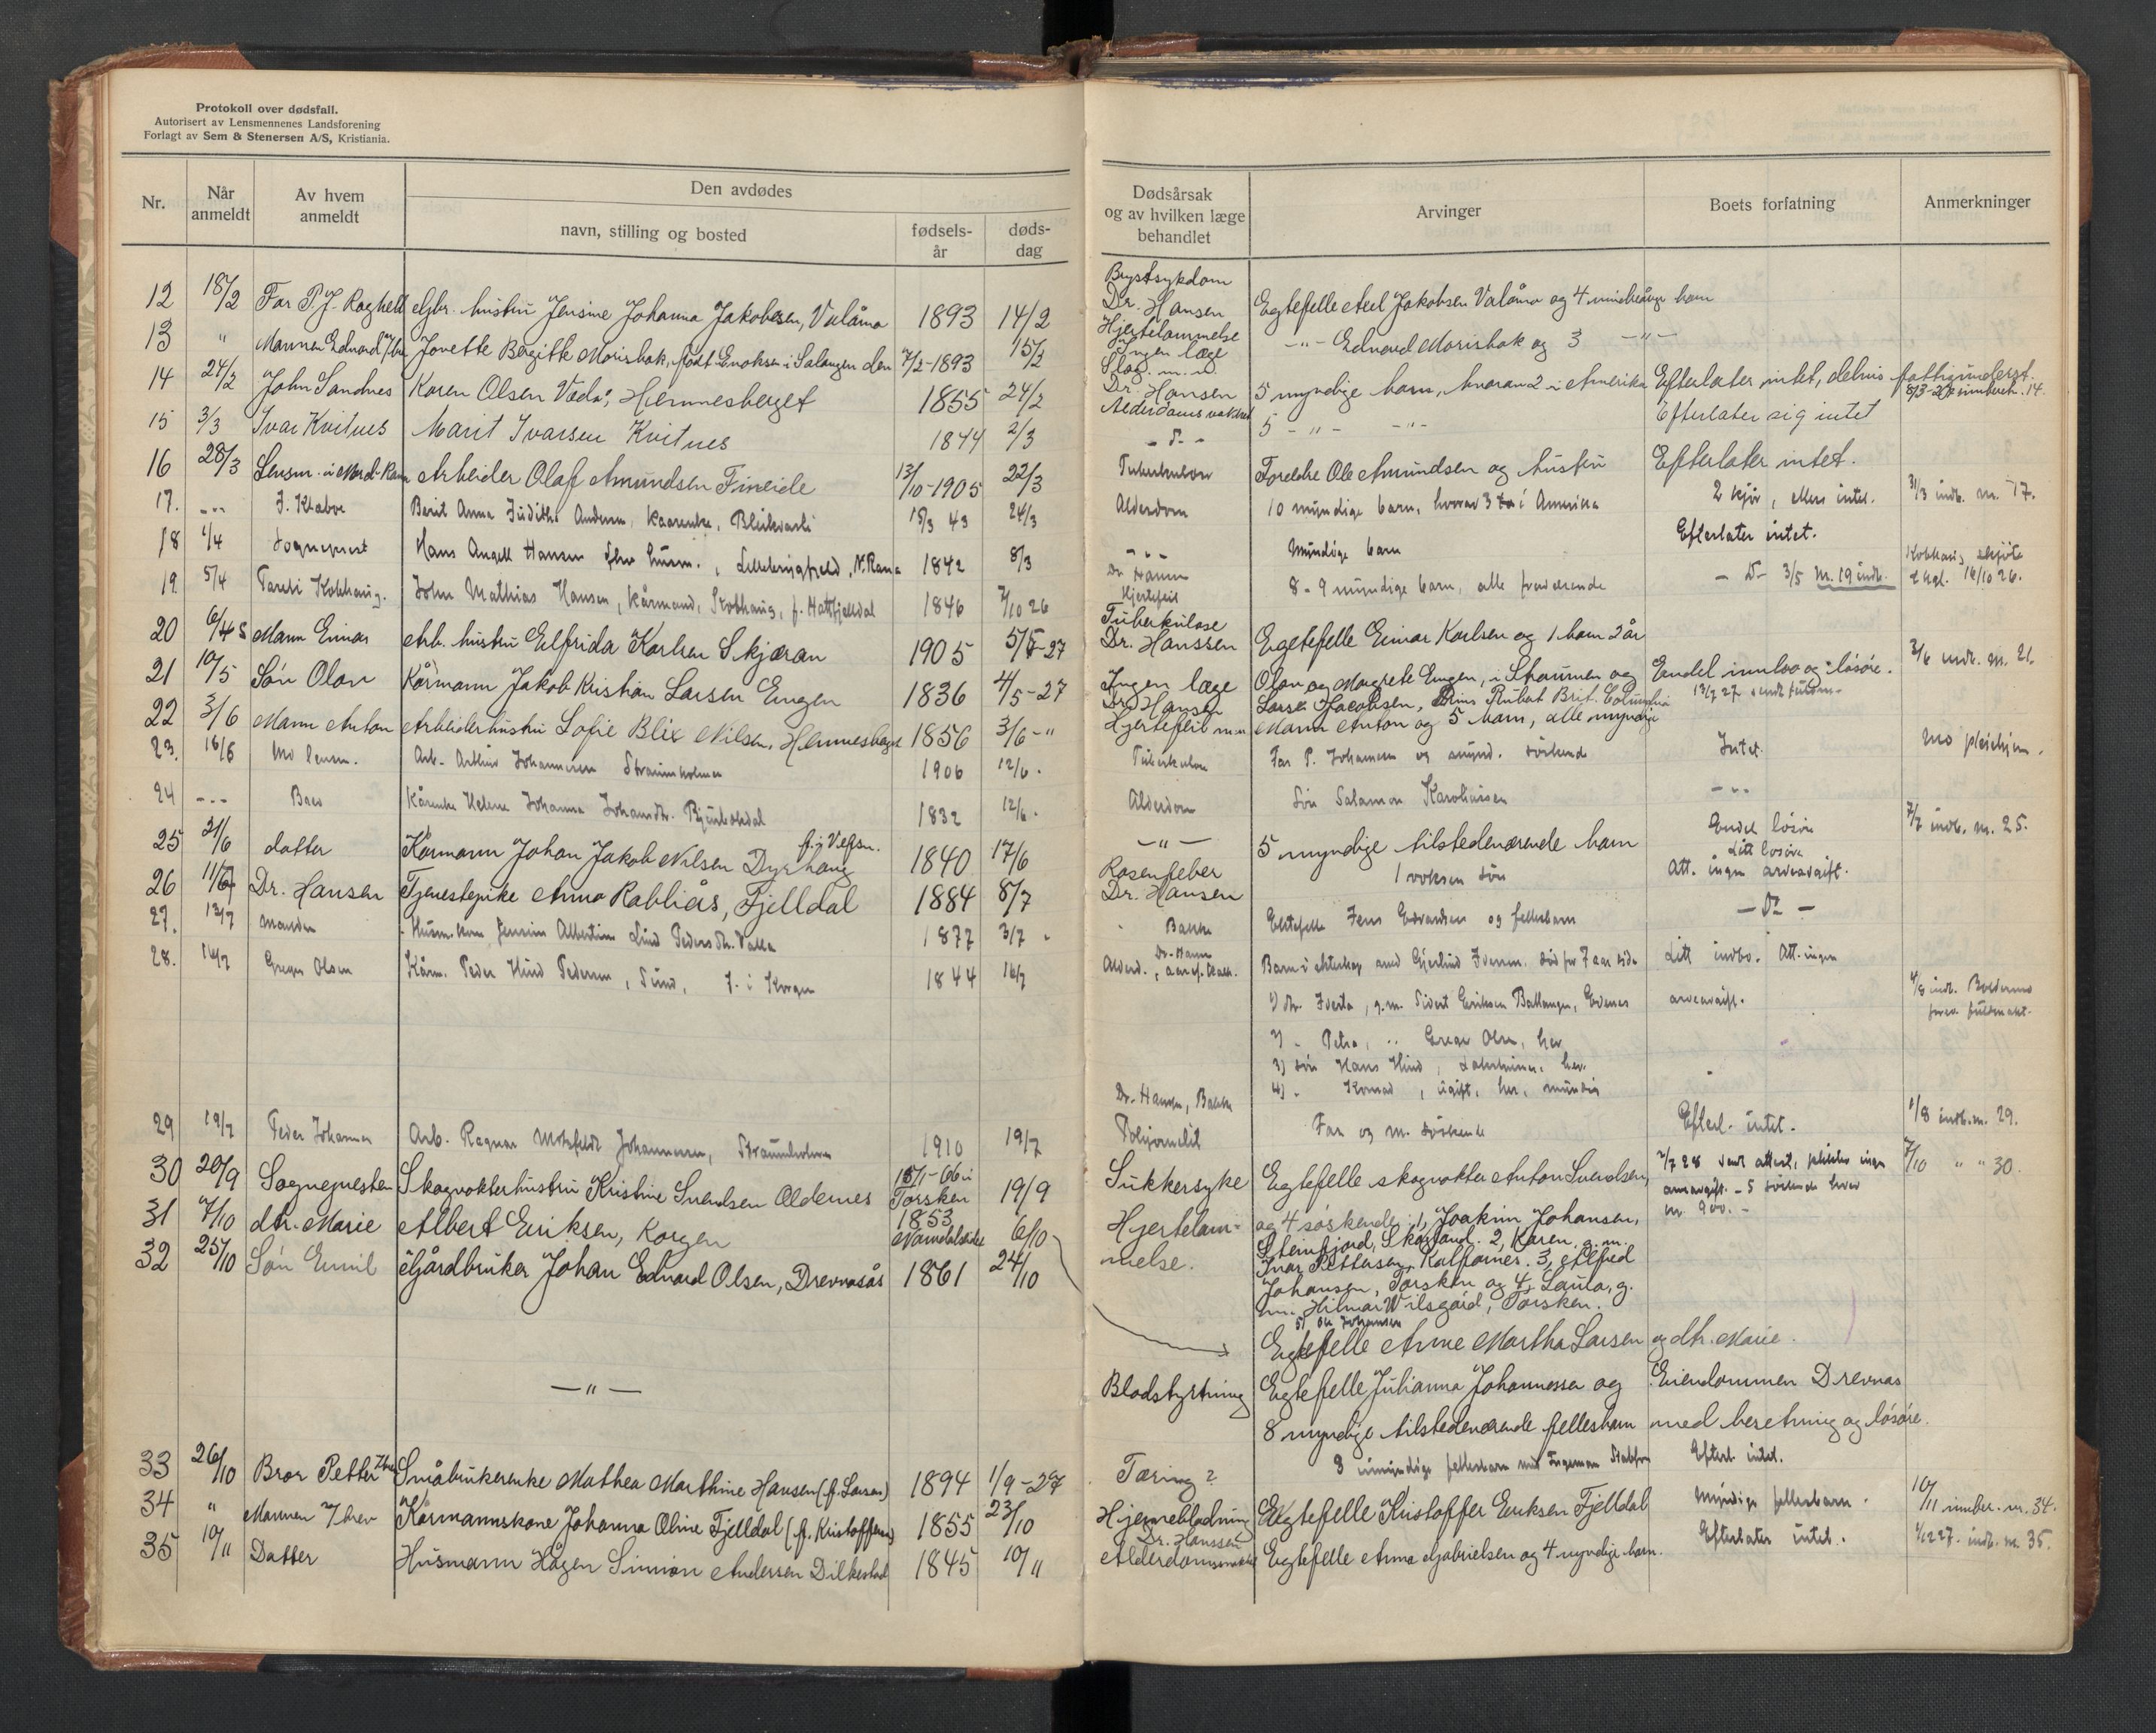 Protokoll over dødsfall.
Autorisert av Lensmennenes Landsforening
Forlagt av Sem & Stenersen A/S, Kristiania.
Nr. Når anmeldt Av hvem anmeldt Den avdødes navn, stilling og bosted fødselsår dødsdag Dødsårsak og av hvilken læge behandlet Arvinger Boets forfatning Anmerkninger
12 18/2 Far P. J. Gbr. hustru Jensine Johanna Jakobsen, Valåmo 1893 14/2 Brystsykdom Dr. Hansen Egtefelle Axel Jakobsen Valåmo og 4 mindreårige barn
13 " Mannen Edvard Jonette Bergitte Morisbak, født Enoksen i Salangen den 7/2-1893 15/2 Hjertelammelse Ingen læge -"- Edvard Morisbak og 3 -"-
14 24/2 John Sandnes Karen Olsen Veda, Hemnesberget 1855 24/2 Slag m. m. Dr. Hansen 5 myndige barn, hvorav 2 i Amerika Efterlater intet, delvis fattigunderst. 8/3-27 innberet. 14.
15 3/3 Ivar Kvitnes Marit Ivarsen Kvitnes 1844 2/3 Alderdomssvakhet 5 -"- -"- Efterlater sig intet
16 28/3 Lensm. i Nord-Rana Arbeider Olaf Amundsen Fineide 13/10-1905 22/3 Tuberkulose Foreldre Ole Amundsen og hustru Efterlater intet.
17. -"- J. Klaboe Berit Anna Judithe Andersen, kaarenke, Bleikvasli 15/3 43 24/3 Alderdom 10 myndige barn, hvorav 3 i Amerika 2 kjør, ellers intet. 31/3 indb. nr. 17.
18 1/4 Sogneprest Hans Angell Hansen husm., N. Rana 1842 8/3 -"- Myndige barn Efterlater intet.
19. 5/4 Kobhaug. John Mathias Hansen, kårmand, Kobhaug, f. Hattfjelldal 1846 7/10 26 Dr. Hansen Hjertefeil 8-9 myndige barn, alle 3/5 nr. 19 indb. Kobhaug skjøte tingl. 16/10 26.
20 Mann Einar Arb. hustru Elfrida Karlsen Skjæran 1905 5/5-27 Tuberkulose Dr. Hanssen Egtefelle Einar Karlsen og 1 barn 2 år
21 10/5 Søn Olav Kårmann Jakob Kristian Larsen Engen 1836 4/5-27 Ingen læge Olav og Margrete Engen, i Straumen og Lars Jacobsen, Prins Rubert Brit. Columbia Endel innbo og løsøre. 3/6 indb. nr. 21.
22 3/6 Mann Anton Arbeiderhustru Sofie Blix Nilsen, Hemnesberget 1856 3/6-" Dr. Hansen Hjertefeil m.m. Mann Anton og 5 barn, alle myndige
23. 16/6 Mo lensm. Arb. Arthur Johannessen Straumholmen 1906 12/6. Tuberkulose Far P. Johannesen og umynd. søskende Intet. Mo pleiehjem.
24 -"- Kårenke Helene Johanna Johansdtr. 1832 12/6. Alderdom Søn Salamon Karolinssen -"-
25 21/6 datter Kårmann Johan Jakob Nilsen Dyrhaug f. i Vefsn. 1840 17/6 -"- 5 myndige tilstedeværende barn Endel løsøre 7/7 indb. nr. 25.
26 Dr. Hansen Tjenestepike Anna Rabliås, Fjelldal 1884 8/7 Rosenfeber Dr. Hansen 1 voksen søn Litt løsøre Att. ingen arveavgift.
27. 13/7 Manden Husm. kone Jensine Albertine Lind Pedersdtr. Valla 1877 3/7 Bakke Ektefelle Jens Edvardsen og fellesbarn
28. 16/7 Greger Olsen Kårm. Peder Hind Pedersen, Sund, f. i Korgen 1844 16/7 Dr. Hansen Alderd., Barn i ekteskap med Gjertrud Iversen. død for 7 aar siden Litt indbo. Att. ingen arveavgift.
1) dtr. Iverta, g.m. Sivert Eriksen Ballangen, Evenes
2) - Petra, " Greger Olsen, her
3) søn Hans Hind, her.
4) - Konrad, ugift, her, myndig
29 19/7 Peder Johannes Arb. Ragnar Motzfeldt Johannessen, Straumholmen 1910 19/7 Dr. Hansen, Bakke Poliomelit Far og m. søskende Efterl. intet. 1/8 indb. nr. 29.
30 20/9 Sognepresten Skogvokterhustru Kristine Svendsen Oldernes 15/1-66 i Torsken 19/9 Sukkersyke Egtefelle skogvokter Anton Svendsen, og 4 søskende: 1, Joakim Johansen, Steinfjord, Skaland. 2, Karen, g. m. Ivar Pettersen, Kalfarnes. 3, Alfred Johansen, Torsken og 4, Laura, g. m. Hilmar Wilsgård, Torsken. 5) Ole Johansen 7/10 " " 30.
31 7/10 dtr. Marie Albert Eriksen, Korgen 1853 Namdalseidet 6/10 Hjertelammelse. Egtefelle Anne Martha Larsen og dtr. Marie.
32 25/10 Søn Emil Gårdbruker Johan Edvard Olsen, Drevnasås 1861 24/10
-"- Blodstyrtning Egtefelle Julianna Johannessen og 8 myndige tilstedeværende fellesbarn Eiendommen Drevnas med besetning og løsøre.
33 26/10 Bror Petter Småbrukerenke Mathea Marthine Hansen (f. Larsen) 1894 1/9-27 Tæring? 3 umyndige fellesbarn med Ingeman Efterl. intet.
34 " Mannen i brev Kårmannskone Johanna Oline Fjelldal (f. Kristoffersen) 1855 23/10 Hjerneblødning Dr. Hanssen Egtefelle Kristoffer Eriksen Fjelldal Myndige fellesbarn. 10/11 innber. nr. 34.
35 10/11 Datter Husmann Hågen Simion Andersen Dilkestad 1845 10/11 Alderdomssvakhet Egtefelle Anna Gabrielsen og 4 myndige barn. Efterlater intet. 1/12 27. indb. nr. 35.